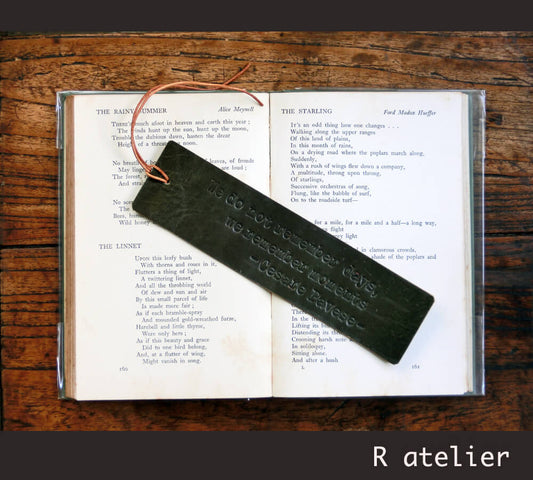 THE RAINY SUMMER
Alice Meynell
There's much afoot in heaven and earth this year;
The winds hunt up the sun, hunt up the moon,
Trouble the dubious dawn, hasten the drear
Height of a threatening
No breath
leaves, of fronds
May
loud;
The forest
Bees, humb
Wild honey
THE LINNET
Upon this leafy bush
With thorns and roses in it,
Flutters a thing of light,
A twittering linnet,
And all the throbbing world
Of dew and sun and air
By this small parcel of life
Is made more fair;
As if each bramble-spray
And mounded gold-wreathed furze,
Harebell and little thyme,
Were only hers;
As if this beauty and grace
Did to one bird belong,
And, at a flutter of wing,
Might vanish in song.
160
THE STARLING
Ford Madox Hueffer
It's an odd thing how one changes . . .
Walking along the upper ranges
Of this land of plains,
In this month of rains,
On a drying road where the poplars march along,
Suddenly,
With a rush of wings flew down a company,
A multitude, throng upon throng,
Of starlings,
Successive orchestras of song,
Flung, like the babble of surf,
On to the roadside turf—
for a mile, for a mile and a half—a long way,
flight
light
in clamorous crowds,
shade of the poplars and
In the
Lifting its
Distending its
Crooning harsh note
In soliloquy,
Sitting alone.
And after a hush
L
161
We do not remember days,
we remember moments
-Cesare Pavese-
R atelier